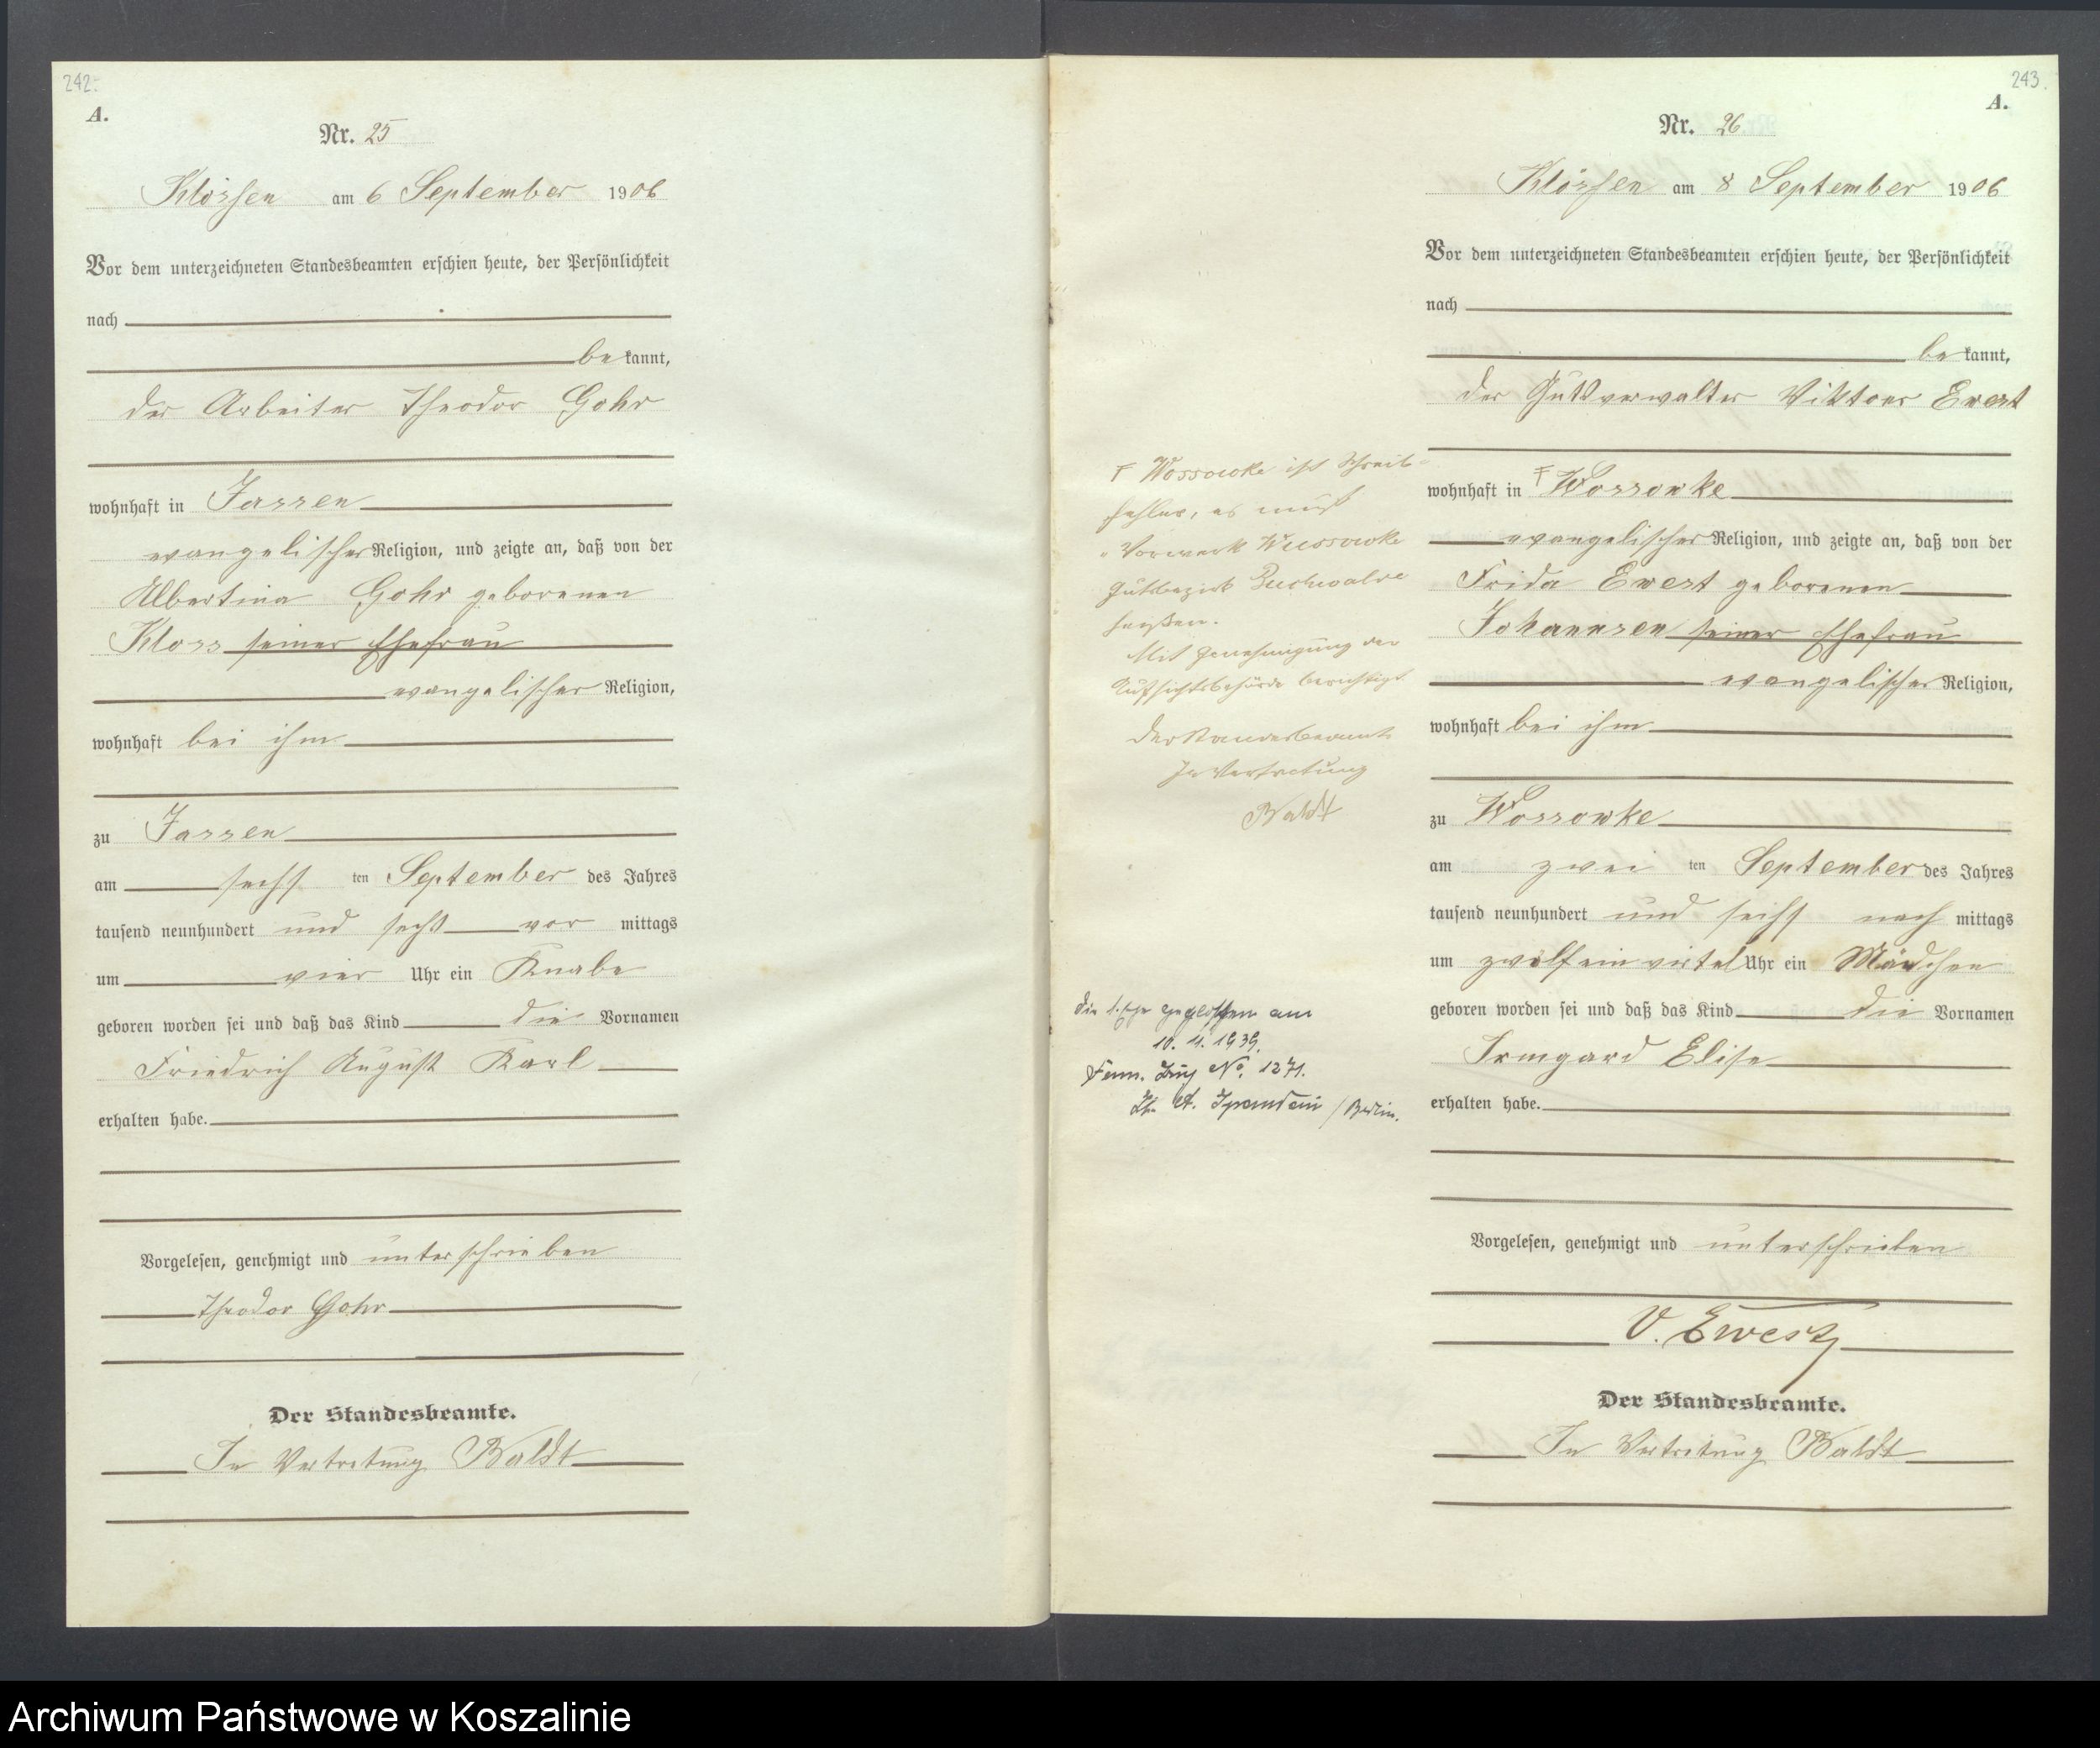 242.
A.
Nr. 25
Klössen am 6 September 1906
Vor dem unterzeichneten Standesbeamten erschien heute, der Persönlichkeit
nach
be kannt,
der Arbeiter Theodor Gohr
wohnhaft in Jassen
evangelischer Religion, und zeigte an, daß von der
Albertina Gohr geborenen
Kloss seiner Ehefrau
evangelischer Religion,
wohnhaft bei ihm
zu Jassen
am sechs ten September des Jahres
tausend neunhundert und sechs vor mittags
um vier Uhr ein Knabe
geboren worden sei und daß das Kind die Vornamen
Friedrich August Karl
erhalten habe.
Vorgelesen, genehmigt und unterschrieben
Theodor Gohr
Der Standesbeamte.
In Vertretung Baldt
243.
A.
Nr. 26
Klössen am 8 September 1906
Vor dem unterzeichneten Standesbeamten erschien heute, der Persönlichkeit
nach
be kannt,
der Gutsverwalter Viktor Ewert
wohnhaft in Wossowke
evangelischer Religion, und zeigte an, daß von der
Frida Ewert geborenen
Johannsen seiner Ehefrau
evangelischer Religion,
wohnhaft bei ihm
zu Wossowke
am zwei ten September des Jahres
tausend neunhundert und sechs nach mittags
um zwölf ein viertel Uhr ein Mädchen
geboren worden sei und daß das Kind die Vornamen
Irmgard Elise
erhalten habe.
Vorgelesen, genehmigt und unterschrieben
V. Ewert
Der Standesbeamte.
In Vertretung Baldt
Wossowke ist Schreib-
fehler, es muß
"Vorwerk Wussowke
Gutsbezirk Buchwalde
heißen.
Mit Genehmigung der
Aufsichtsbehörde berichtigt
Der Standesbeamte
In Vertretung
Baldt
Die 1. Ehe geschlossen am
10. 11. 1939.
No. 1271.
St. A. Spandau / Berlin.
Archiwum Państwowe w Koszalinie